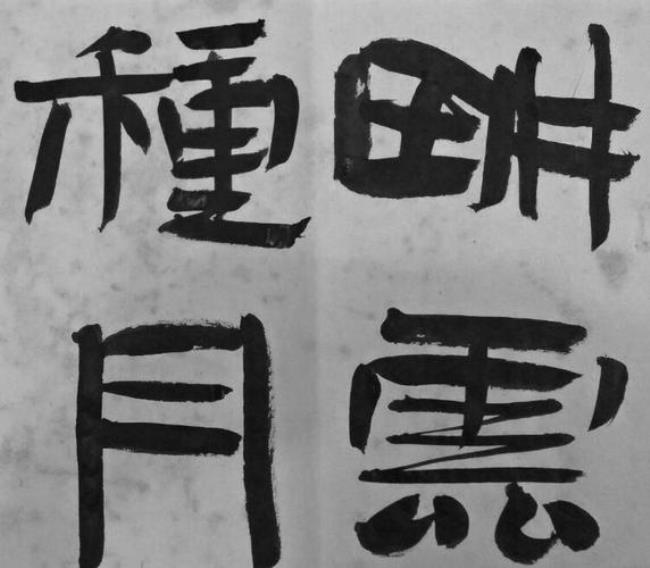 畊雲
種月